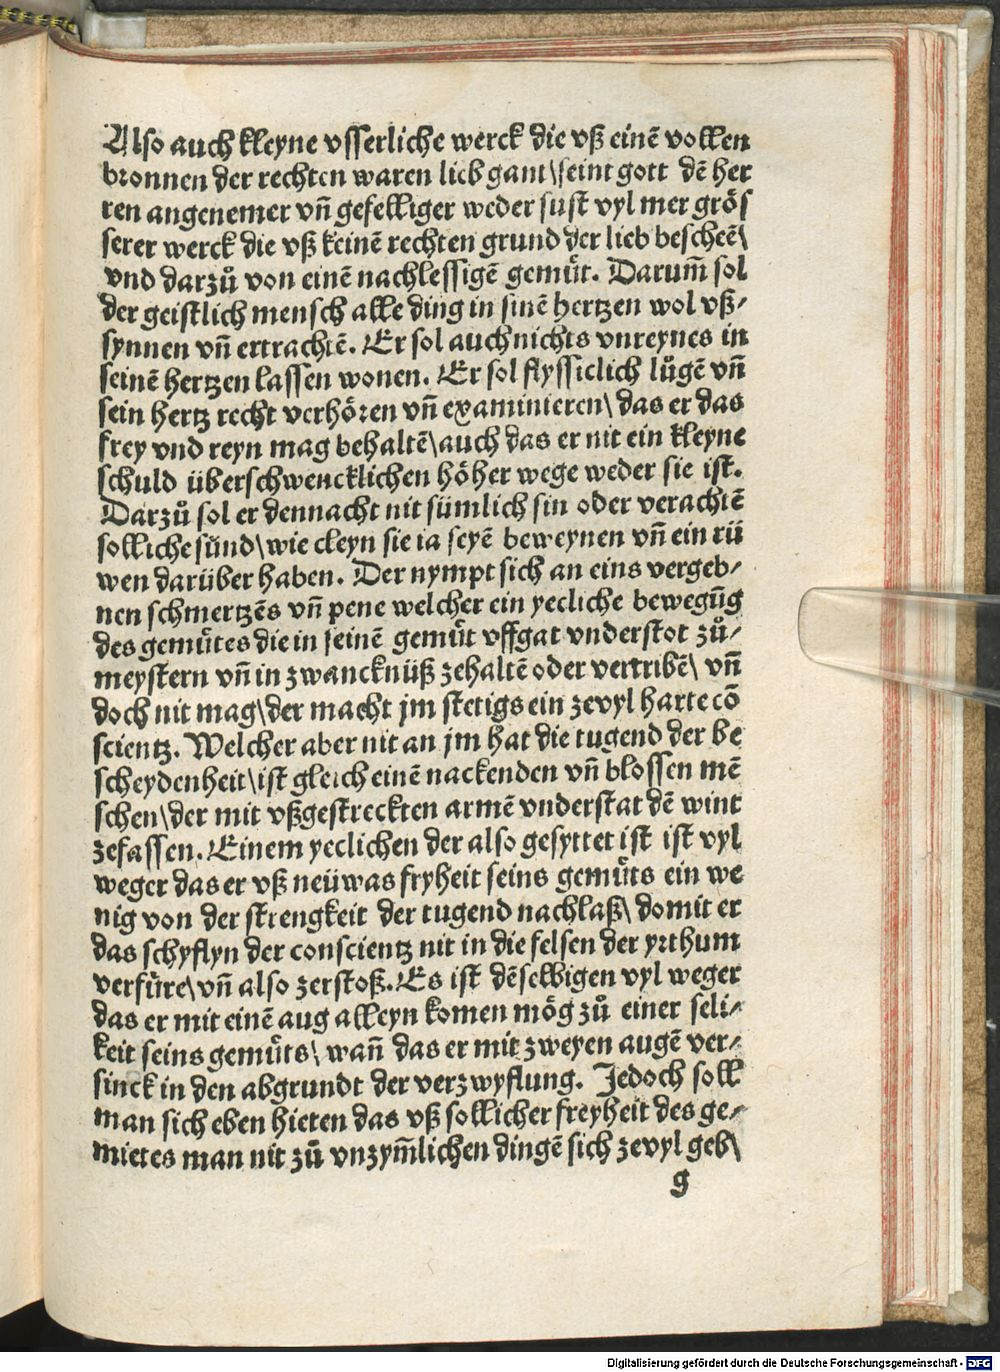 Also auch kleyne vsserliche werck die vß einē vollen
bronnen der rechten waren lieb gant\ seint gott dē her
ren angenemer vñ gefelliger weder sust vyl mer grös
serer werck die vß keinē rechten grund der lieb bescheē\
vnd darzů von einē nachlessigē gemuͤt. Darum̄ sol
der geistlich mensch alle ding in sinē hertzen wol vß⸗
synnen vñ ertrachtē. Er sol auch nichts vnreynes in
seinē hertzen lassen wonen. Er sol flyssiclich luͤgē vñ
sein hertz recht verhören vñ examinieren\ das er das
frey vnd reyn mag behaltē\ auch das er nit ein kleyne
schuld überschwencklichen höher wege weder sie ist.
Darzů sol er dennacht nit sümlich sin oder verachtē
solliche sünd\ wie cleyn sie ia seyē beweynen vñ ein rü
wen darüber haben. Der nympt sich an eins vergeb⸗
nen schmertzēs vñ pene welcher ein yecliche bewegūg
des gemuͤtes die in seinē gemuͤt vffgat vnderstot zů⸗
meystern vñ in zwancknüß zehaltē oder vertribē\ vñ
doch nit mag\ der macht jm stetigs ein zevyl harte cō
scientz. Welcher aber nit an jm hat die tugend der be
scheydenheit\ ist gleich einē nackenden vñ blossen mē
schen\ der mit vßgestreckten armē vnderstat dē wint
zefassen. Einem yeclichen der also gesyttet ist ist vyl
weger das er vß neüwas fryheit seins gemuͤts ein we
nig von der strengkeit der tugend nachlaß\ domit er
das schyflyn der conscientz nit in die felsen der yrthum
verfuͤre\ vñ also zerstoß. Es ist dēselbigen vyl weger
das er mit einē aug alleyn komen mög zů einer seli⸗
keit seins gemuͤts\ wañ das er mit zweyen augē ver⸗
sinck in den abgrundt der verzwyflung. Jedoch soll
man sich eben hieten das vß sollicher freyheit des ge⸗
mietes man nit zů vnzym̄lichen dingē sich zevyl geb\
g
Digitalisierung gefördert durch die Deutsche Forschungsgemeinschaft - DFG